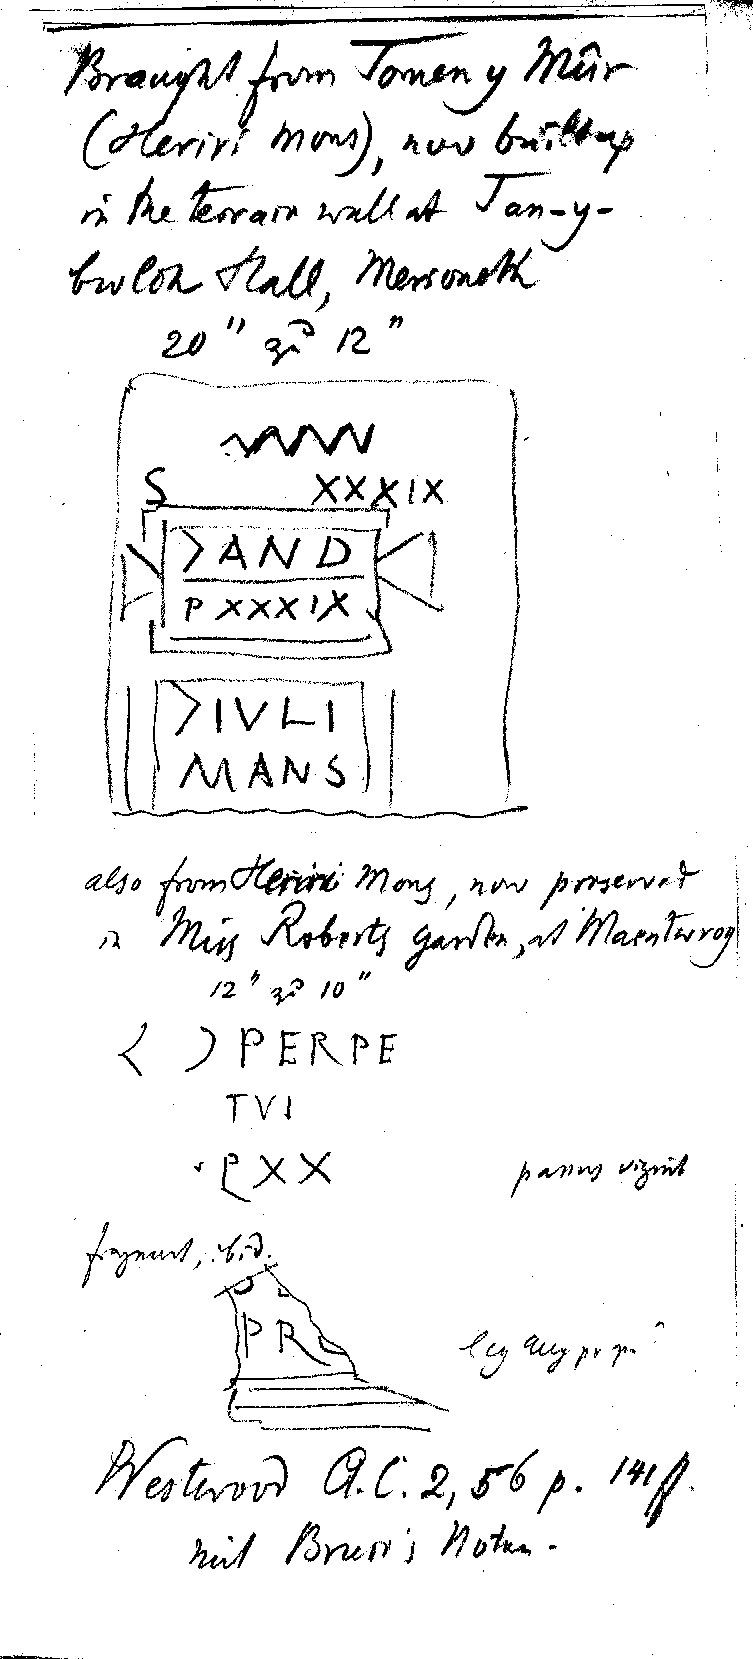 Braught from Tomen y Mûr
(Heriri Mons), now built up
in the terrain wall at Tan-y-
bwlch Hall, Merioneth
20" 12"
S XXXIX
>AND
P XXXIX
>IVLI
MANS
also from Heriri Mons, now preserved
in Miss Roberts garden, at Maentwrog
12" 10"
PERPE
TVI
P XX
passus viginti
fragment, ibid.
PR
leg Aug pr
Westwood A.C. 2, 56 p. 141 ff.
mit Notes.